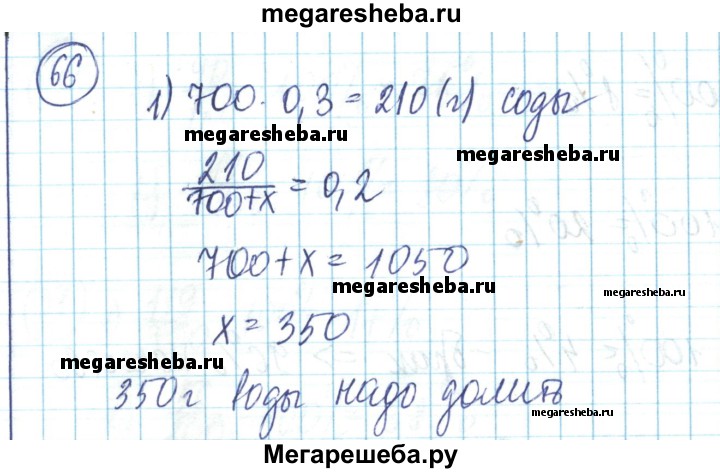 megaresheba.ru
66
1) 700 · 0,3 = 210 (г) соды
megaresheba.ru
megaresheba.ru
210
700+x = 0,2
700+x = 1050
megaresheba.ru
megaresheba.ru
x = 350
megaresheba.ru
350 г воды надо долить
megaresheba.ru
Мегарешеба.ру